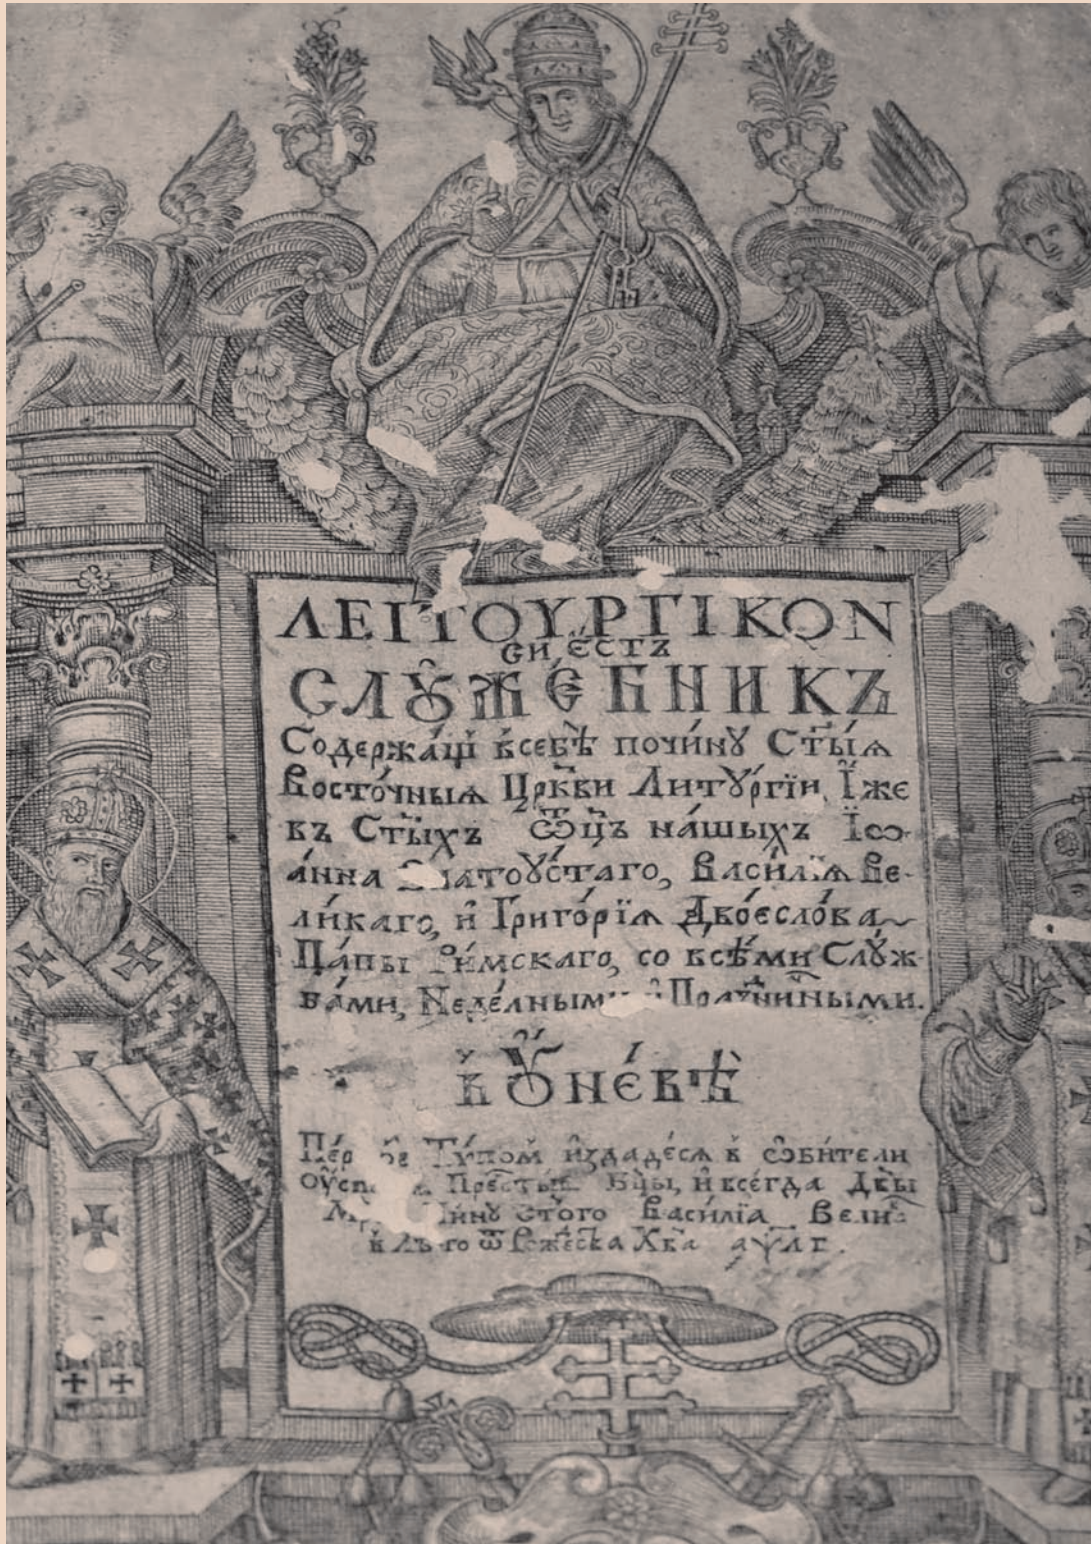 ΛΕΙΤΟΥΡΓΙΚΟΝ
си є́стъ
СЛꙊЖЕБНИКЪ
Содержа́щїй в̾себѣ̀ почи́нꙋ Ст҃ы́ѧ
Восто́чныѧ Цр҃кви Литꙋргі́и, І҆́же
въ Ст҃ы́хъ Ѻ҆ц҃ъ на́шыхъ Іѡ-
а́нна Златоꙋ́стаго, Васи́лїѧ Ве-
ли́каго, и҆ Григо́рїѧ Двоєсло́ва
Па́пы Ри́мскаго, со всѣ́ми Слꙋ́ж-
бами, Неде́лными и҆
в̾ Ꙋ҆́невѣ
Тѵ́пом и҆здаде́сѧ в̾ ѻ҆би́тели
Прест҃ы́ѧ Бц҃ы, и҆ всегда Дв҃ы
Чи́нꙋ ст҃ого Васи́лїа Вели
в̾ Лѣ́то ѿ Рождества Хв҃а ҂аѱлг.